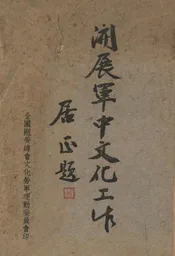 開展軍中文化工作
居正題
全國慰勞總會文化勞軍運動委員會印